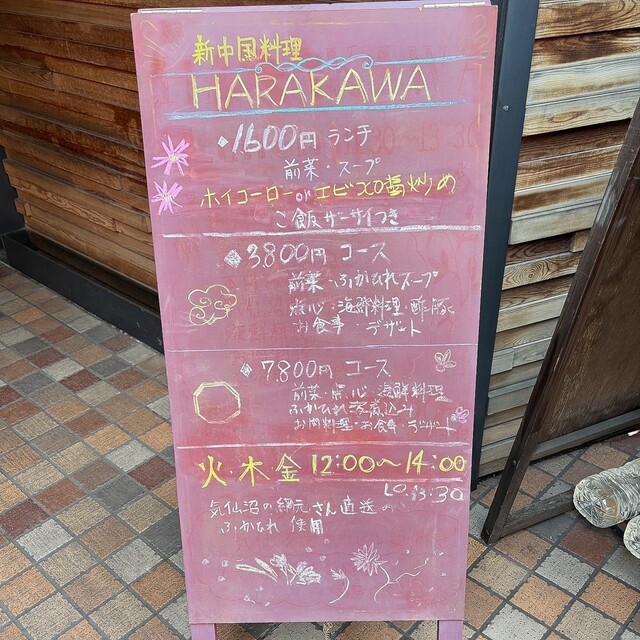 新中国料理
HARAKAWA
1600円 ランチ
前菜・スープ
ホイコーロー or エビXO醤炒め
ご飯ザーサイつき
3.800円 コース
前菜・ふかひれスープ
点心・海鮮料理・酢豚
お食事・デザート
7.800円 コース
前菜・点心・海鮮料理
ふかひれ姿煮込み
お肉料理・お食事・デザート
火・木 金 12:00〜14:00
LO.13:30
気仙沼の網元さん直送の
ふかひれ 使用